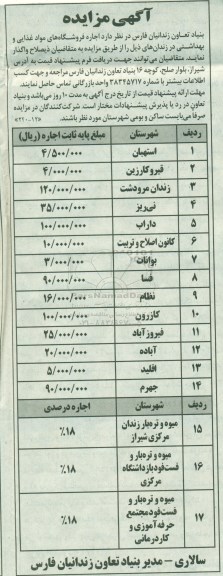 آگهی مزایده
بنیاد تعاون زندانیان فارس در نظر دارد اجاره فروشگاه‌های مواد غذایی و
بهداشتی در زندان‌های ذیل را از طریق مزایده به متقاضیان ذیصلاح واگذار
نمایند. متقاضیان می‌توانند جهت دریافت فرم پیشنهاد قیمت به آدرس
شیراز، بلوار صلح، کوچه ۱۶ بنیاد تعاون زندانیان فارس مراجعه و جهت کسب
اطلاعات بیشتر با شماره ۳۸۳۴۵۷۱۷ واحد بازرگانی تماس حاصل نمایند.
مهلت ارائه پیشنهاد قیمت از تاریخ درج آگهی به مدت ۱۰ روز می‌باشد و بنیاد
تعاون در رد یا پذیرش پیشنهادات مختار است. شرکت‌کنندگان در مزایده
صرفا می‌بایست ساکن و بومی شهرستان مورد نظر باشند.
ردیف شهرستان مبلغ پایه ثابت اجاره (ریال)
۱ استهبان ۴/۵۰۰/۰۰۰
۲ قیروکارزین ۴/۰۰۰/۰۰۰
۳ زندان مرودشت ۱۲۰/۰۰۰/۰۰۰
۴ نی‌ریز ۳۵/۰۰۰/۰۰۰
۵ داراب ۱۰۰/۰۰۰/۰۰۰
۶ کانون اصلاح و تربیت ۱۰/۰۰۰/۰۰۰
۷ بوانات ۳/۰۰۰/۰۰۰
۸ فسا ۹۰/۰۰۰/۰۰۰
۹ نظام ۱۶/۰۰۰/۰۰۰
۱۰ کازرون ۱۰۰/۰۰۰/۰۰۰
۱۱ فیروزآباد ۲۵/۰۰۰/۰۰۰
۱۲ آباده ۲۰/۰۰۰/۰۰۰
۱۳ اقلید ۵/۰۰۰/۰۰۰
۱۴ جهرم ۹۰/۰۰۰/۰۰۰
ردیف شهرستان اجاره درصدی
۱۵ میوه و تره‌بار زندان
مرکزی شیراز ۱۸٪
۱۶ میوه و تره‌بار و
فست‌فود بازداشتگاه
مرکزی ۱۸٪
۱۷ میوه و تره‌بار و
فست‌فود مجتمع
حرفه‌آموزی و
کاردرمانی ۱۸٪
سالاری – مدیر بنیاد تعاون زندانیان فارس